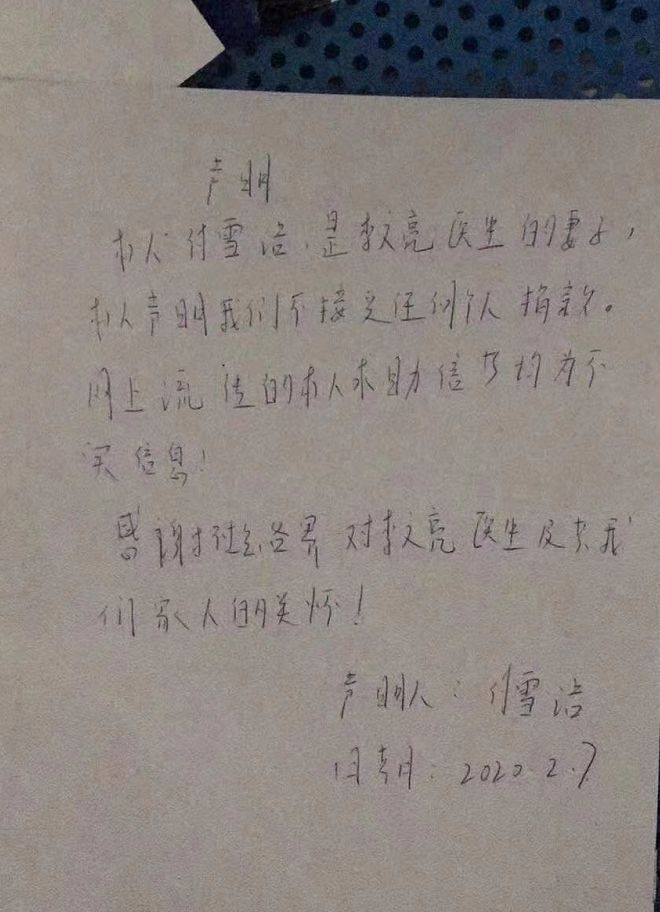 声明
本人付雪洁，是李文亮医生的妻子，
本人声明我们不接受任何个人捐款。
网上流传的本人求助信息均为不
实信息！
感谢社会各界对李文亮医生及其我
们家人的关怀！
声明人：付雪洁
日期：2020.2.7